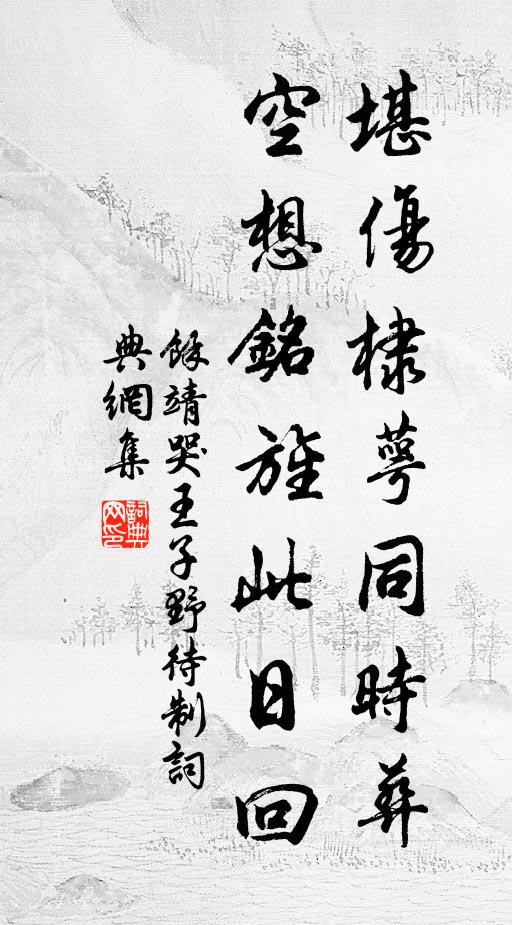 堪傷棣萼同時葬
空想銘旌此日回
餘靖哭王子野待制詞
典網集
詞典
网印